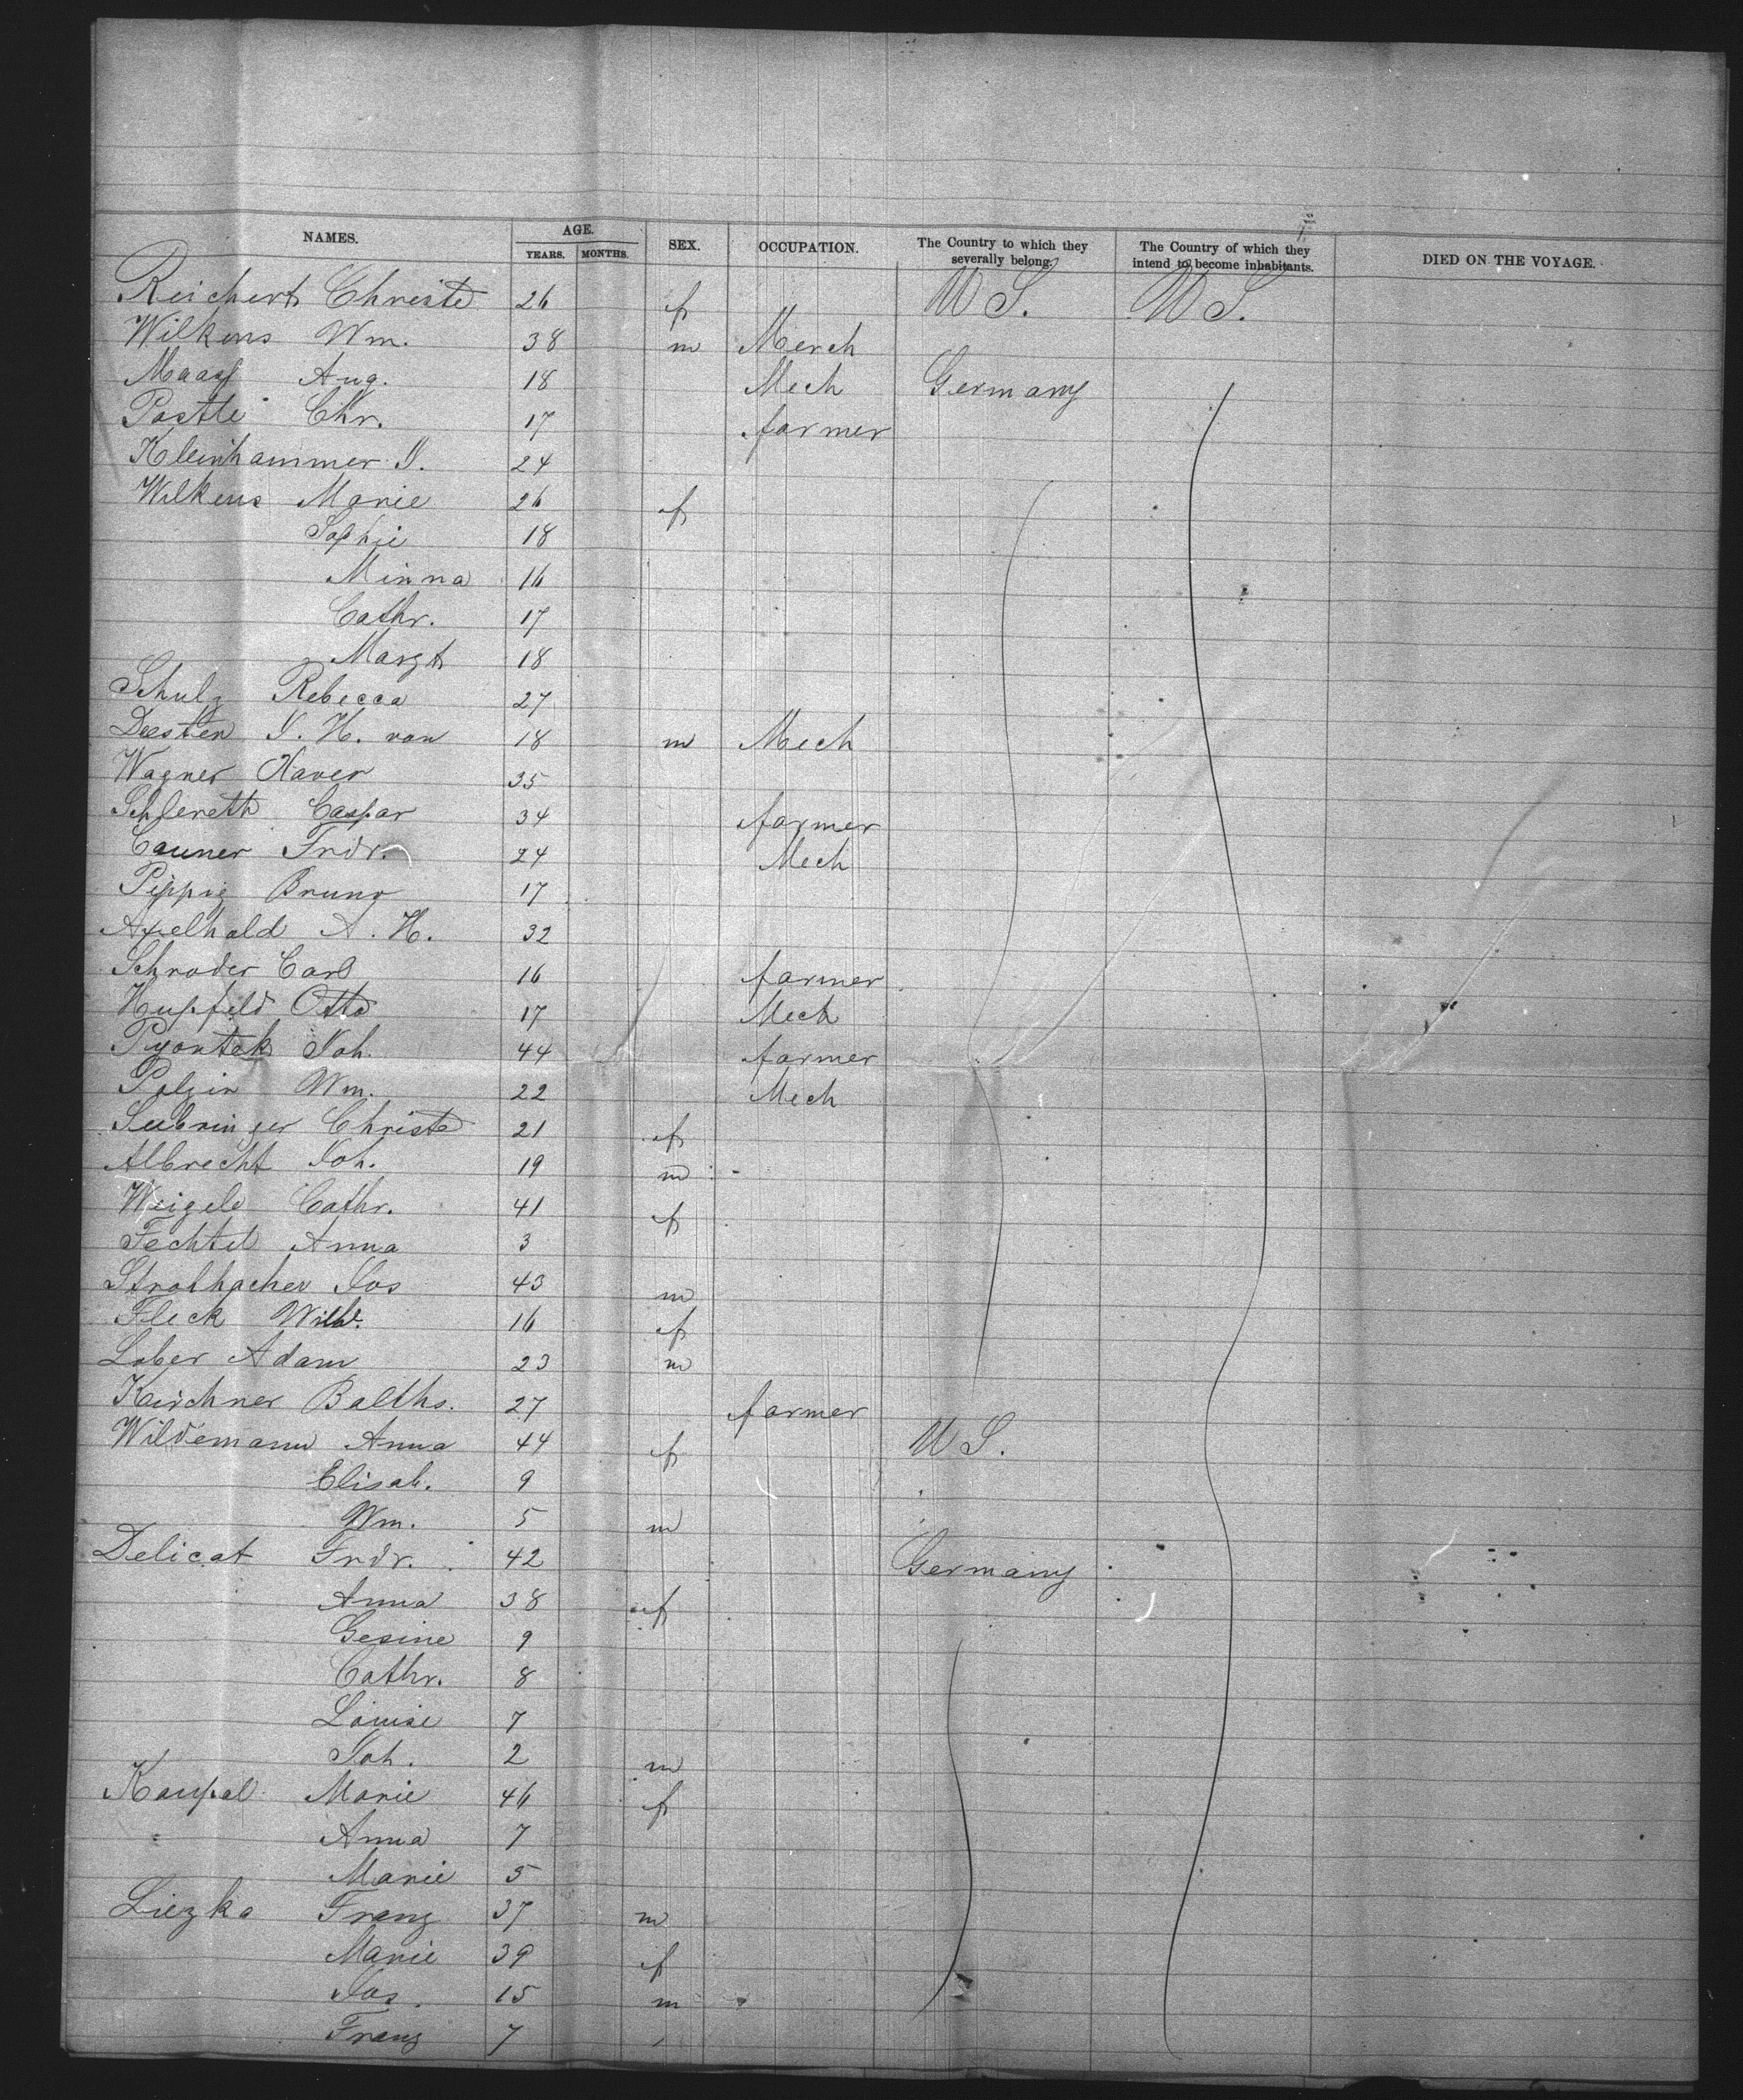 NAMES. AGE. SEX. OCCUPATION. The Country to which they severally belong. The Country of which they intend to become inhabitants. DIED ON THE VOYAGE.
YEARS. MONTHS.
Reichert Christe 26 f U S. U S.
Wilkens Wm. 38 m Merch
Maass Aug. 18 Mech Germany
Postle Chr. 17 farmer
Kleinhammer J. 24
Wilkens Marie 26 f
Sophie 18
Minna 16
Cathr. 17
Margt 18
Schulz Rebecca 27
Deesten J. H. von 18 m Mech
Wagner Xaver 35
Schlereth Caspar 34 farmer
Cauner Frdr. 24 Mech
Pippig Bruno 17
A. H. 32
Schroder Carl 16 farmer
Hupfeld Otto 17 Mech
Pyontek Joh. 44 farmer
Polzin Wm. 22 Mech
Christe 21 f
Albrecht Joh. 19 m
Weigele Cathr. 41 f
Fechtel Anna 3
Jos 43 m
Fleck Wilh. 16 f
Lober Adam 23 m
Kirchner Balths. 27 farmer
Wildemann Anna 44 f U S.
Elisab. 9
Wm. 5 m
Delicat Frdr. 42 Germany
Anna 38 f
Gesine 9
Cathr. 8
Louise 7
Joh. 2 m
Kaupal Marie 46 f
Anna 7
Marie 5
Liezka Franz 37 m
Marie 39 f
Jos. 15 m
Franz 7